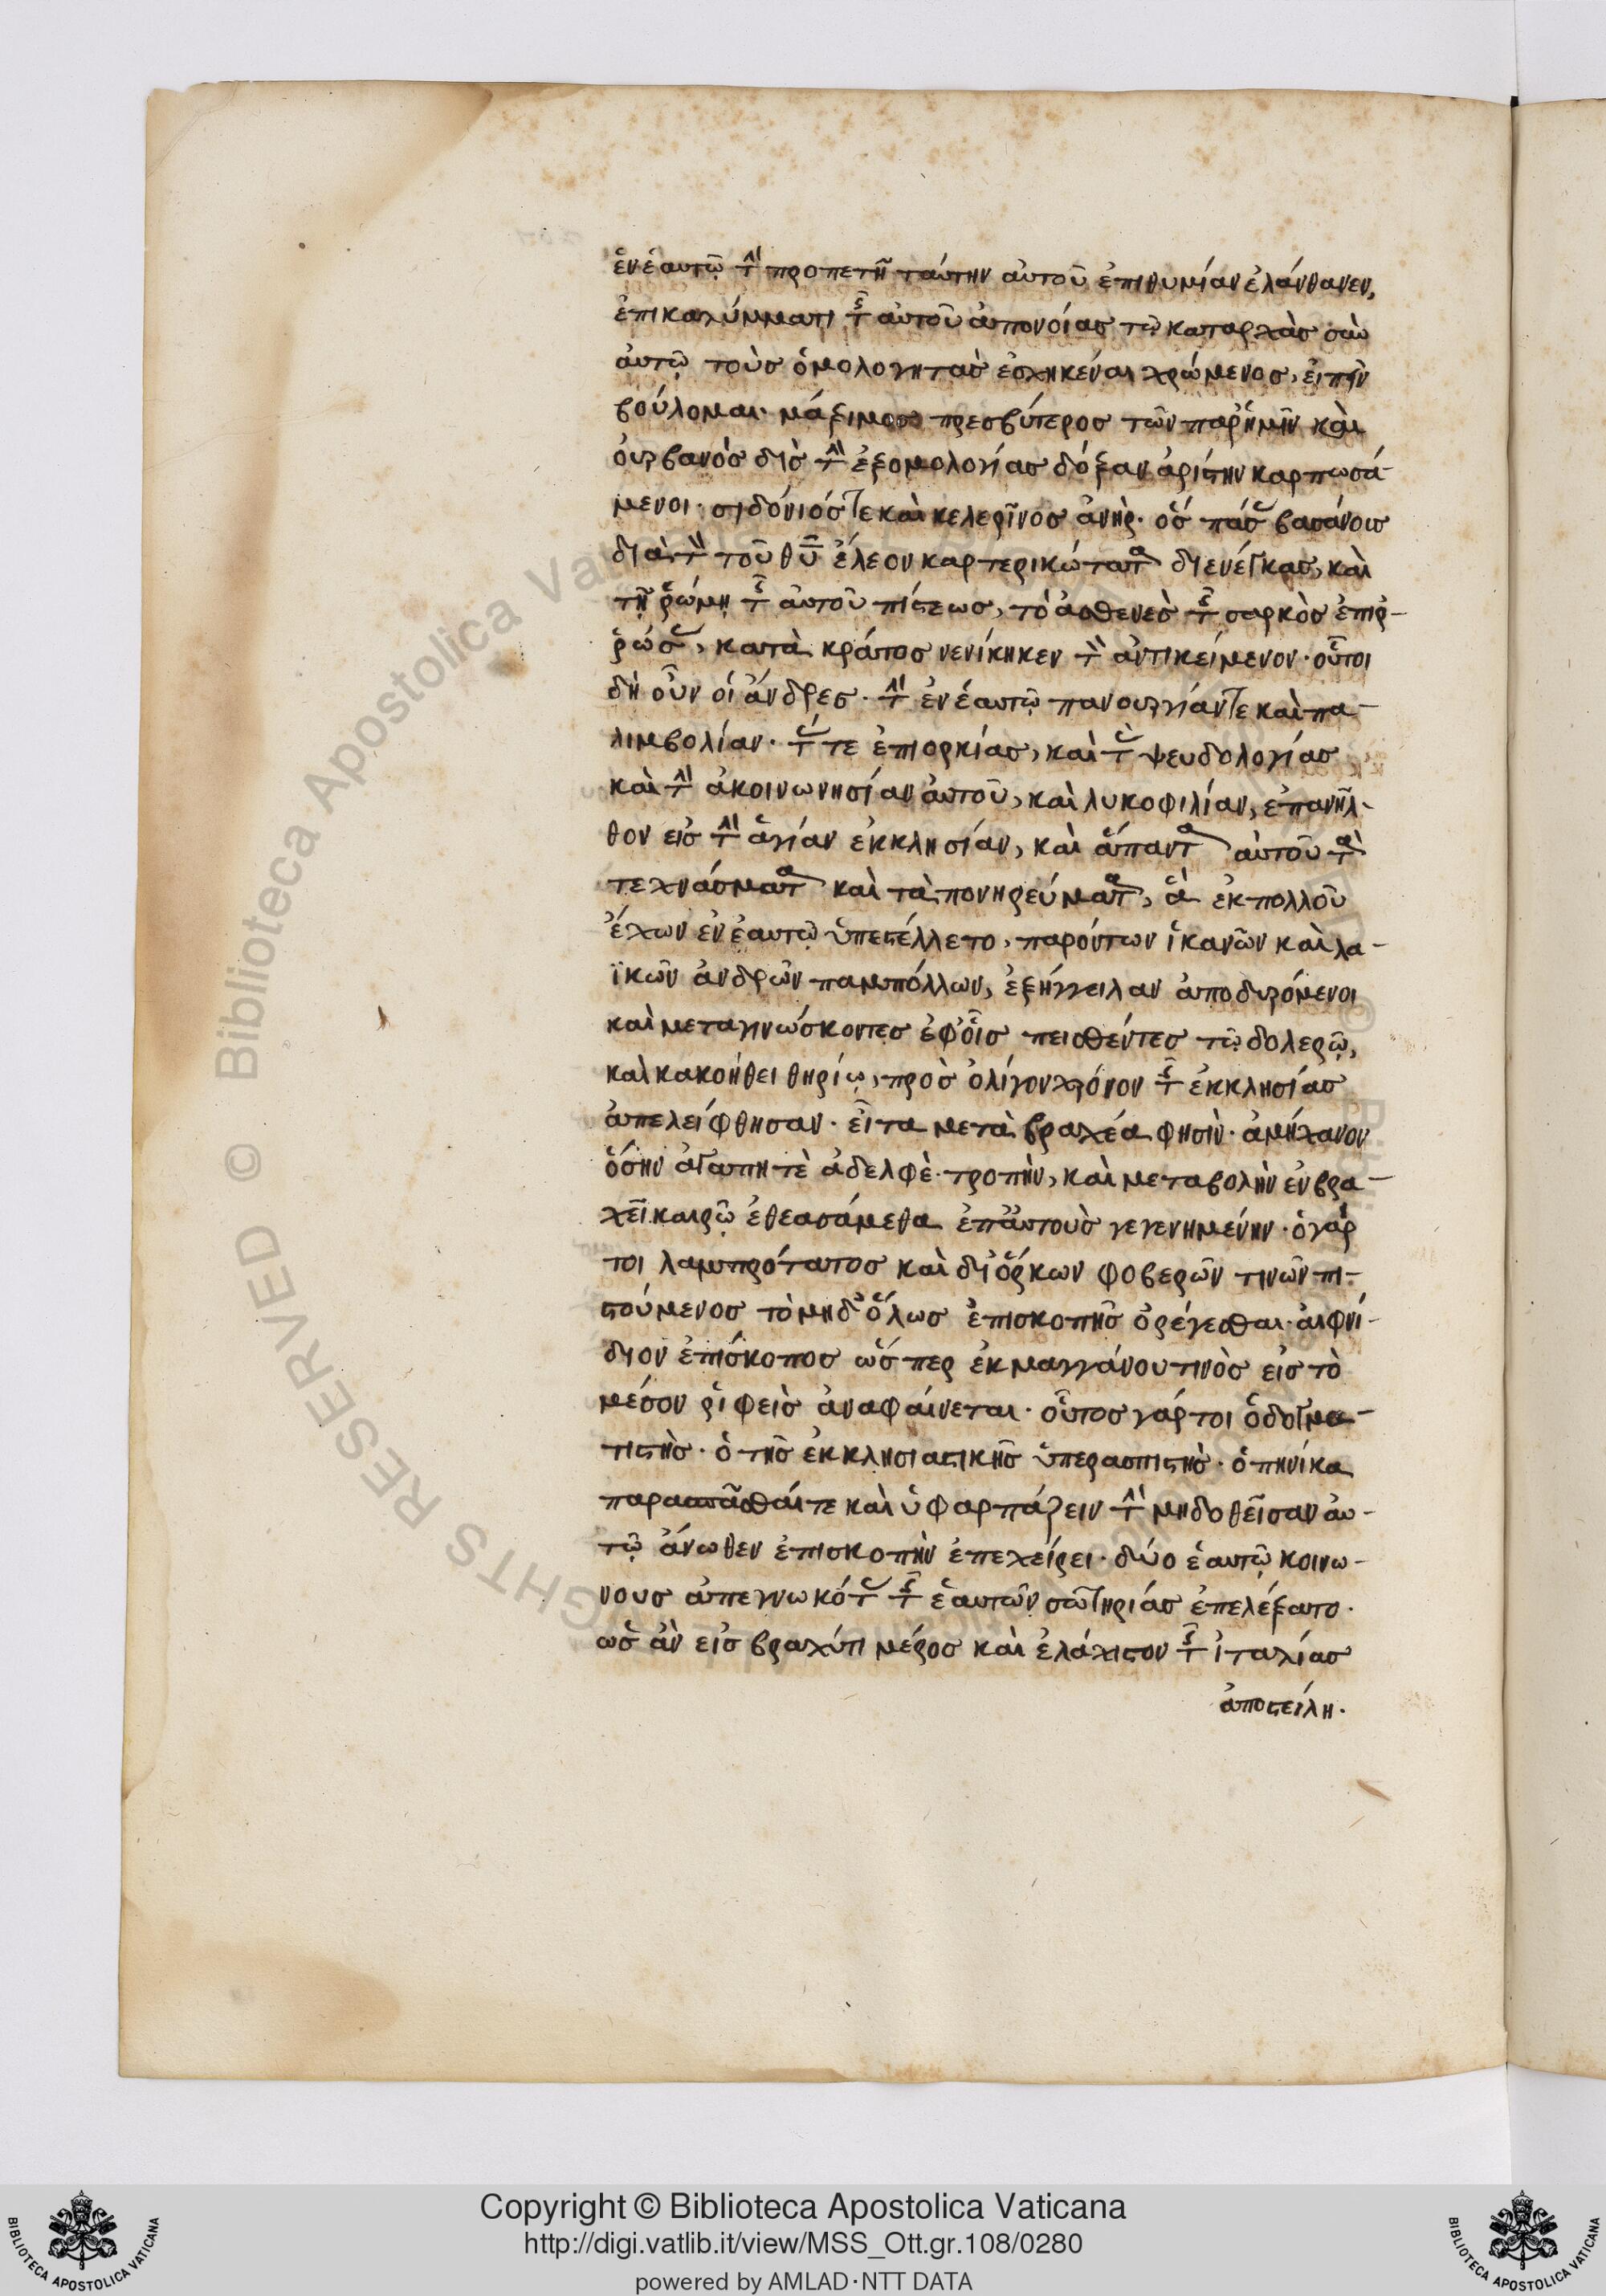 ἐν ἑαυτῷ τὴν προπετῆ ταύτην αὐτοῦ ἐπιθυμίαν ἐλάνθανεν,
ἐπικαλύμματι τῆς αὐτοῦ ἀπονοίας τῷ καταρχὰς σὺν
αὐτῷ τοὺς ὁμολογητὰς ἐσχηκέναι χρώμενος, εἰπεῖν
βούλομαι· μάξιμος πρεσβύτερος τῶν παρ' ἡμῖν καὶ
οὐρβανὸς δὶς τὴν ἐξομολογίας δόξαν ἀρίστην καρπωσά-
μενοι· σιδόνιός τε καὶ κελερῖνος ἀνὴρ· ὃς πάσας βασάνους
διὰ τὸν τοῦ θῦ ἔλεον καρτερικώτατα διενέγκας, καὶ
τῇ ῥώμῃ τῆς αὐτοῦ πίστεως, τὸ ἀσθενὲς τῆς σαρκὸς ἐπιρ-
ρώσας, κατὰ κράτος νενίκηκεν τὸν ἀντικείμενον· οὗτοι
δὴ οὖν οἱ ἄνδρες· τὴν ἐν ἑαυτῷ πανουργίαν τε καὶ πα-
λιμβολίαν· τάς τε ἐπιορκίας, καὶ τὰς ψευδολογίας
καὶ τὴν ἀκοινωνησίαν αὐτοῦ, καὶ λυκοφιλίαν, ἐπανῆλ-
θον εἰς τὴν ἁγίαν ἐκκλησίαν, καὶ ἅπαντα αὐτοῦ τὰ
τεχνάσματα καὶ τὰ πονηρεύματα, ἃ ἐκ πολλοῦ
ἔχων ἐν ἑαυτῷ ὑπεστέλλετο, παρόντων ἱκανῶν καὶ λα-
ϊκῶν ἀνδρῶν παμπόλλων, ἐξήγγειλαν ἀποδυρόμενοι
καὶ μεταγινώσκοντες ἐφ' οἷς πεισθέντες τῷ δολερῷ,
καὶ κακοήθει θηρίῳ, πρὸς ὀλίγον χρόνον τῆς ἐκκλησίας
ἀπελείφθησαν· εἶτα μετὰ βραχέα φησὶν· ἀμήχανον
ὅσην ἀγαπητὲ ἀδελφὲ· τροπὴν, καὶ μεταβολὴν ἐν βρα-
χεῖ καιρῷ ἐθεασάμεθα ἐπ' αὐτοὺς γεγενημένην· ὁ γάρ
τοι λαμπρότατος καὶ δι' ὅρκων φοβερῶν τινῶν πι-
στούμενος τὸ μηδ' ὅλως ἐπισκοπῆς ὀρέγεσθαι· αἰφνί-
διον ἐπίσκοπος ὥσπερ ἐκ μαγγάνου τινὸς εἰς τὸ
μέσον ῥιφεὶς ἀναφαίνεται· οὗτος γάρ τοι ὁ δογμα-
τιστὴς· ὁ τῆς ἐκκλησιαστικῆς ὑπερασπιστὴς· ὁπηνίκα
παρασπᾶσθαί τε καὶ ὑφαρπάζειν τὴν μὴ δοθεῖσαν αὐ-
τῷ ἄνωθεν ἐπισκοπὴν ἐπεχείρει· δύο ἑαυτῷ κοινω-
νους ἀπεγνωκότας τῆς ἑαυτῶν σωτηρίας ἐπελέξατο·
ὡς ἂν εἰς βραχύτι μέρος καὶ ἐλάχιστον τῆς ἰταλίας
ἀποστείλη.
Copyright © Biblioteca Apostolica Vaticana
http://digi.vatlib.it/view/MSS_Ott.gr.108/0280
powered by AMLAD·NTT DATA